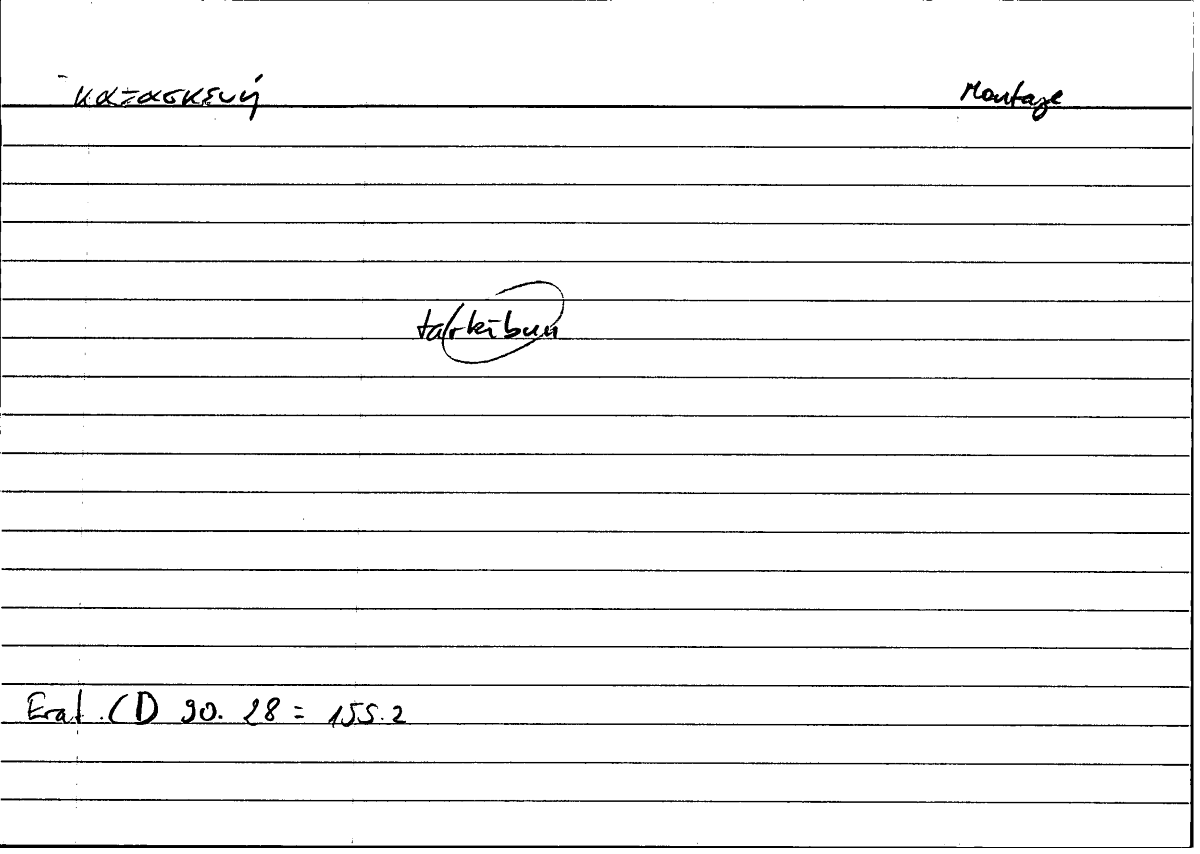 κατασκευή Montage
tarkībun
Erat. CD 90. 28 = 155.2